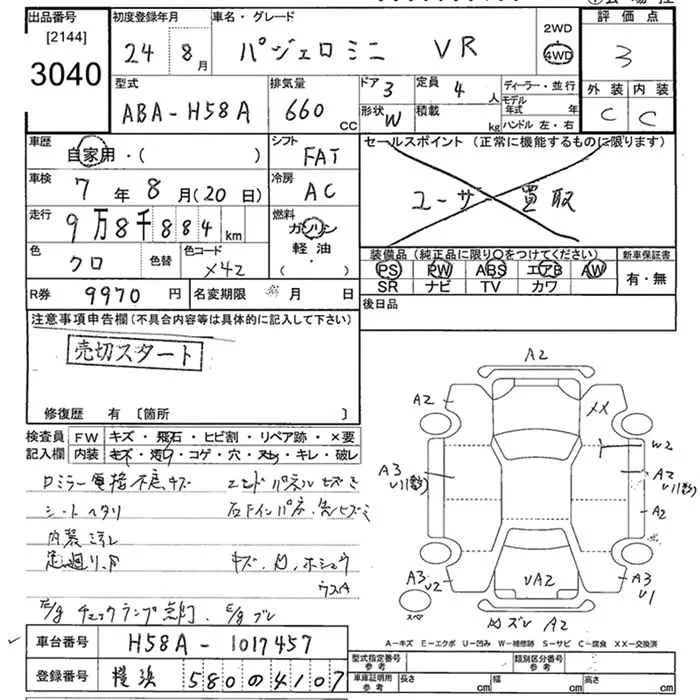 出品番号 初度登録年月 車名・グレード 2WD 評価点
[2144] 24年 8月 パジェロミニ VR 4WD 3
3040
型式 排気量 ドア 3 定員 4人 ディーラー・並行 外装 内装
ABA-H58A 660cc 形状 W 積載 kg モデル年式 年 C C
ハンドル 左・右
車歴 シフト セールスポイント (正常に機能するものに限ります)
自家用・( ) FAT
車検 冷房 ユーザー買取
7年 8月(20日) AC
走行 燃料
9万8千884km ガソリン
色 色替 色コード 軽油 装備品 (純正品に限り○をつけてください) 新車保証書
クロ X42 ( ・ ) PS PW ABS エアB AW 有・無
SR ナビ TV カワ
R券 9970円 名変期限 月 日 後日品
注意事項申告欄(不具合内容等は具体的に記入して下さい)
売切スタート
A2
A2 XX
修復歴 有 [箇所 ]
検査員 FW キズ・飛石・ヒビ割・リペア跡・×要
記入欄 内装 キズ・汚れ・コゲ・穴・ヌレ・キレ・破レ
W2
A3 A2
A2
シートヘタリ
内装ヨゴレ
A3 U2 UA2 A3 U1
スペア
A2
チェックランプ点灯、E/gブレ
A=キズ E=エクボ U=凹み W=補修跡 S=サビ C=腐食 XX=交換済
車台番号 H58A-1017457
型式指定番号 参考 類別区分番号 参考
登録番号 横浜 580の4107
車庫証明用 参考 長さ cm 幅 cm 高さ cm